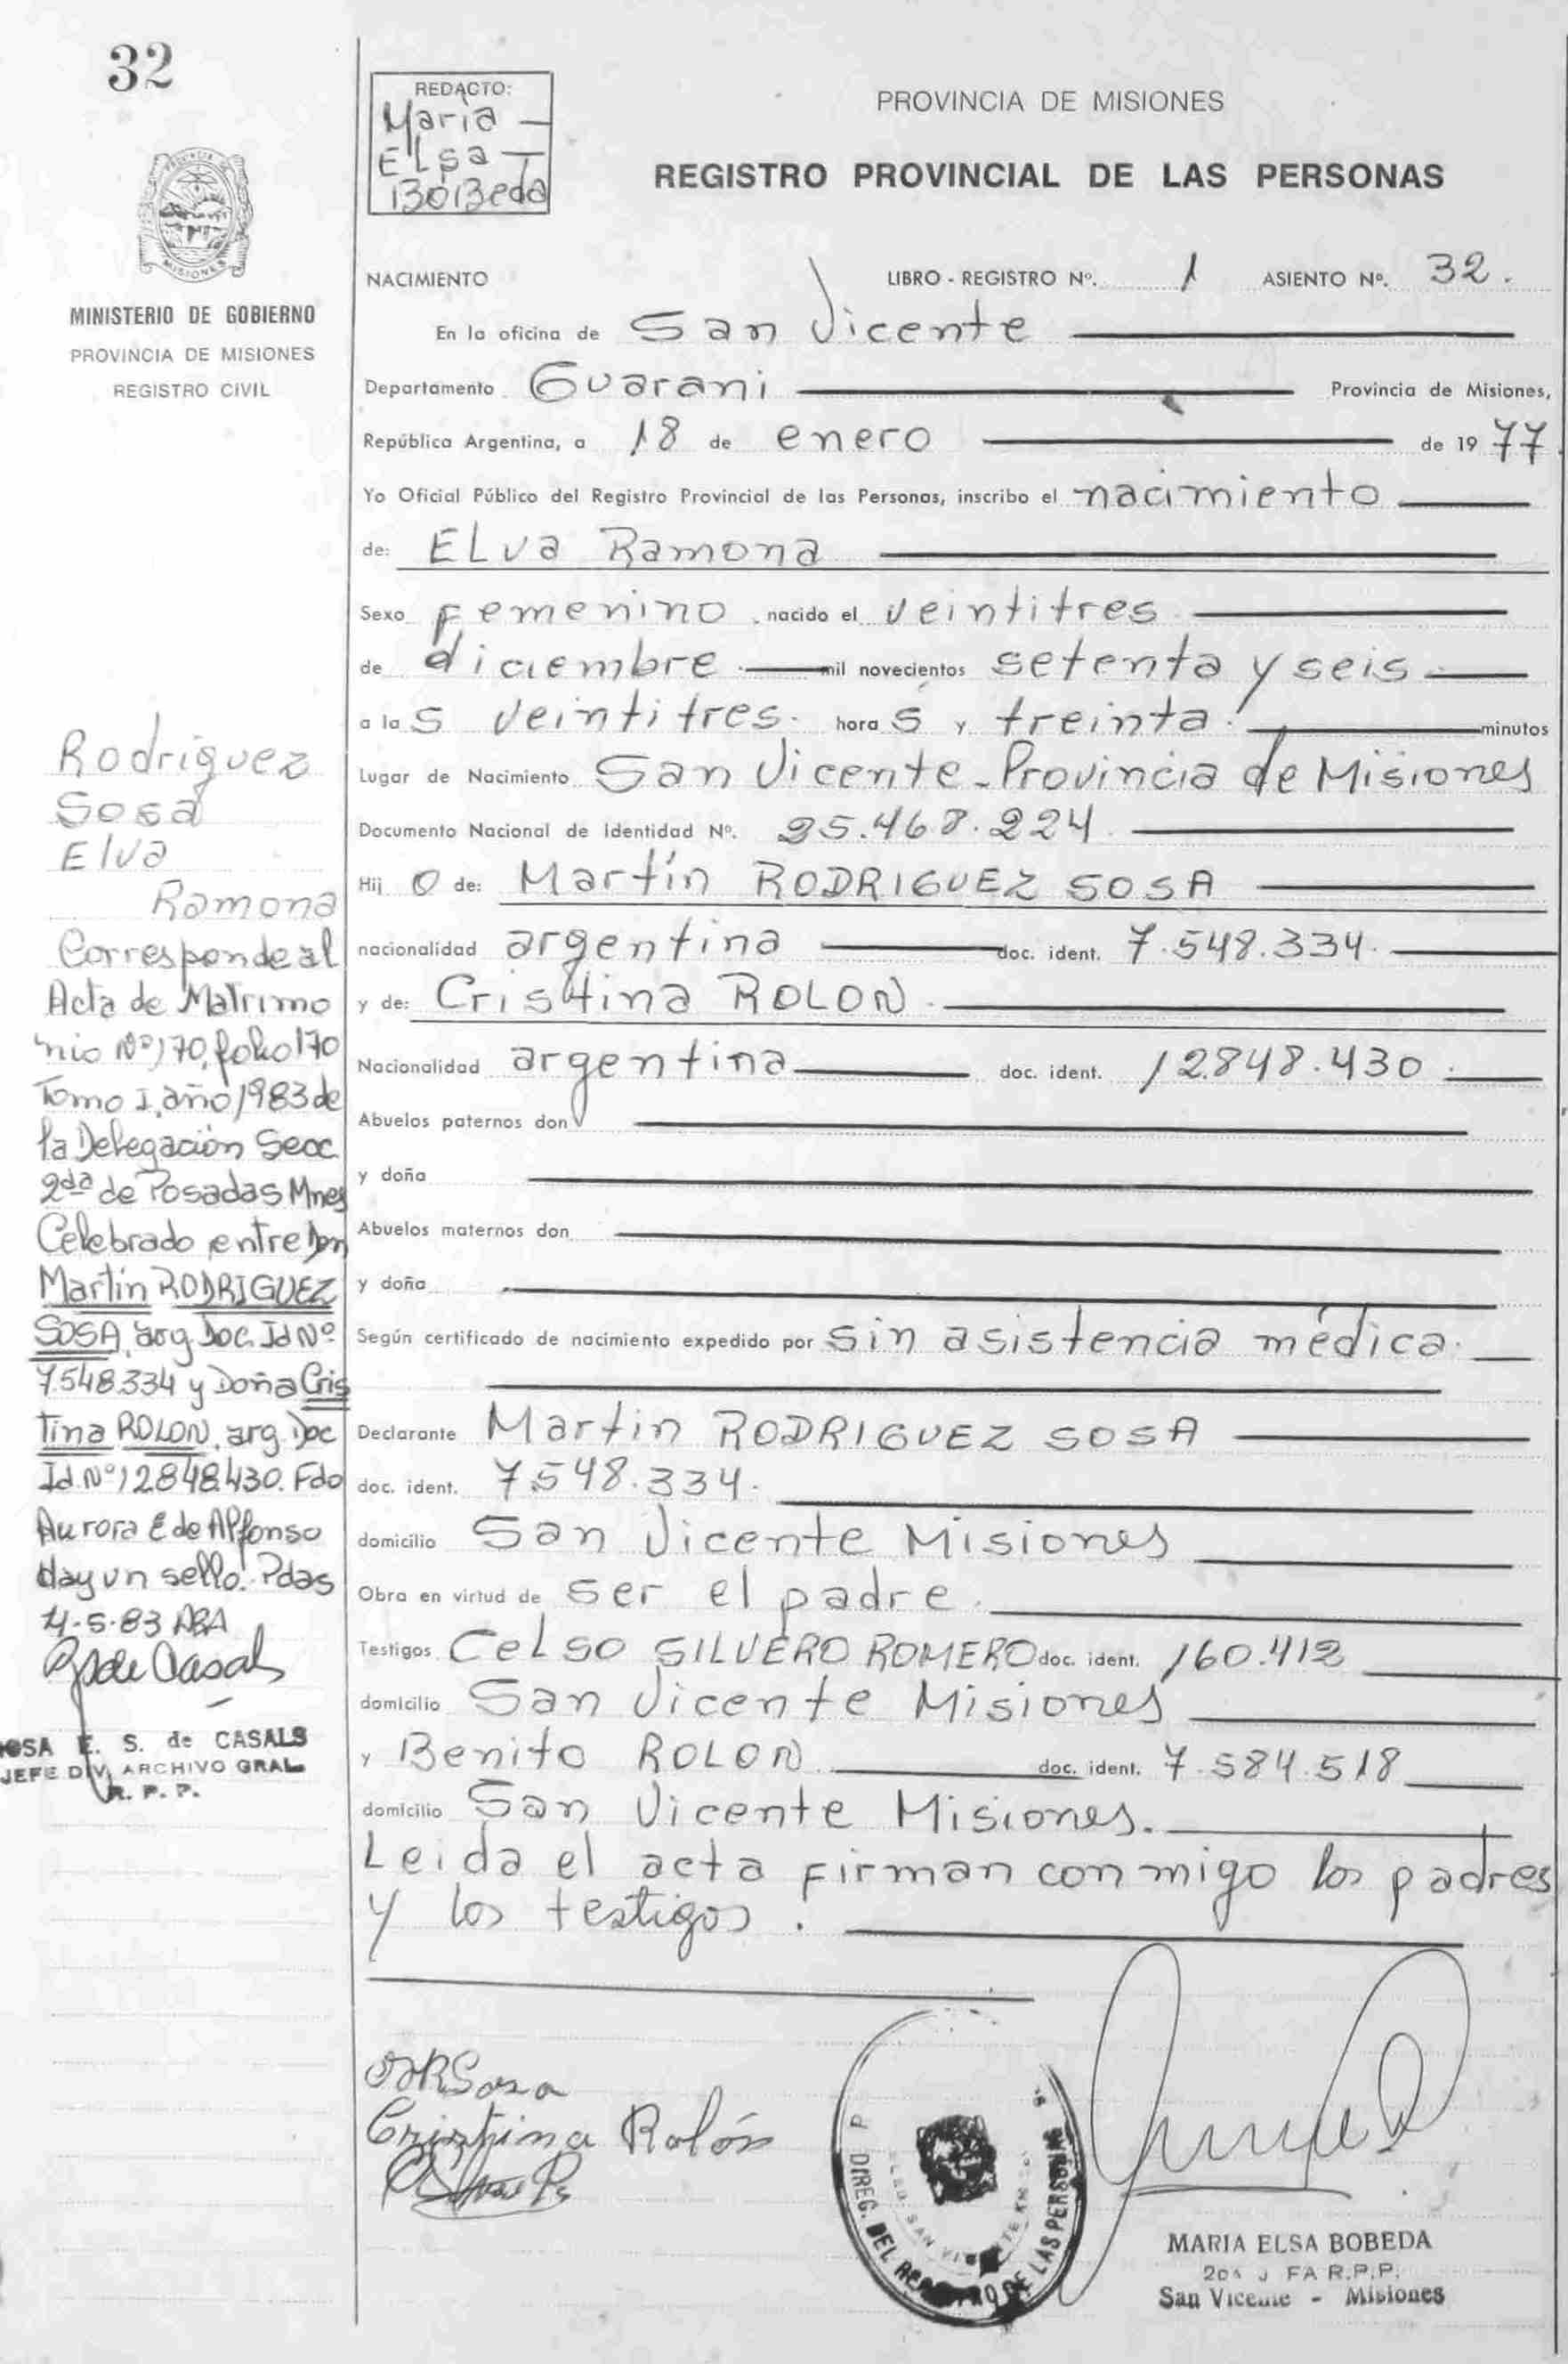 32
MINISTERIO DE GOBIERNO
PROVINCIA DE MISIONES
REGISTRO CIVIL
Rodriguez
Sosa
Elva
Ramona
Corresponde al
Acta de Matrimo
nio Nº 170, folio 170
Tomo I, año 1983 de
la Delegación Secc
2da de Posadas Mnes
Celebrado entre Don
Martin RODRIGUEZ
SOSA, arg Doc. Id Nº
7.548.334 y Doña Cris
Tina ROLON, arg. Doc
Id. Nº 12.848.430. Fdo
Aurora E de Alfonso
Hay un sello. Pdas
4-5-83 ABA
E. S. de CASALS
JEFE DIV. ARCHIVO GRAL
R. P. P.
REDACTO:
Maria
Elsa
Bobeda
PROVINCIA DE MISIONES
REGISTRO PROVINCIAL DE LAS PERSONAS
NACIMIENTO LIBRO - REGISTRO Nº. 1 ASIENTO Nº. 32.
En la oficina de San Vicente
Departamento Guarani Provincia de Misiones,
República Argentina, a 18 de enero de 1977
Yo Oficial Público del Registro Provincial de las Personas, inscribo el nacimiento
de: ELva Ramona
Sexo femenino nacido el veintitres
de diciembre mil novecientos setenta y seis
a las veintitres hora s y treinta minutos
Lugar de Nacimiento San Vicente - Provincia de Misiones
Documento Nacional de Identidad Nº. 25.468.224
Hij o de: Martín RODRIGUEZ SOSA
nacionalidad argentina doc. ident. 7.548.334
y de: Cristina ROLON
Nacionalidad argentina doc. ident. 12.848.430
Abuelos paternos don
y doña
Abuelos maternos don
y doña
Según certificado de nacimiento expedido por sin asistencia médica
Declarante Martin RODRIGUEZ SOSA
doc. ident. 7.548.334.
domicilio San Vicente Misiones
Obra en virtud de ser el padre
Testigos CeLSO SILVERO ROMERO doc. ident. 160.412
domicilio San Vicente Misiones
y Benito ROLON doc. ident. 7.584.518
domicilio San Vicente Misiones.
Leida el acta firman conmigo los padres
y los testigos.
Cristina Rolón
DIREG. DEL REGISTRO DE LAS PERSONAS
MARIA ELSA BOBEDA
R.P.P.
San Vicente - Misiones